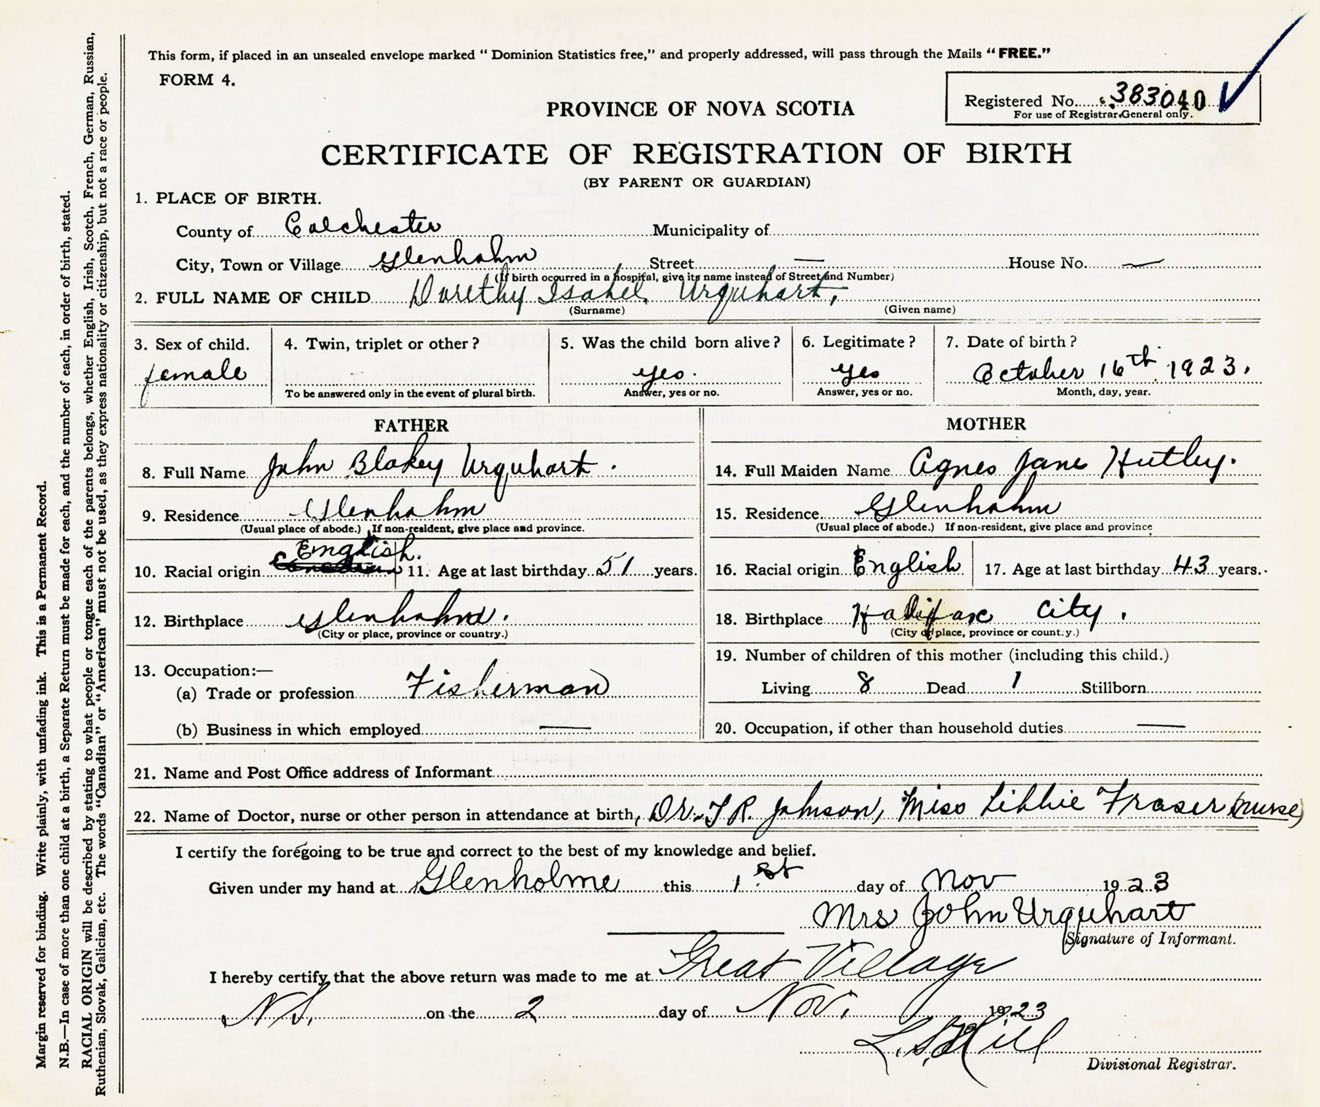 This form, if placed in an unsealed envelope marked “ Dominion Statistics free,” and properly addressed, will pass through the Mails “FREE.”
FORM 4.
Registered No. 383040
For use of Registrar General only.
PROVINCE OF NOVA SCOTIA
CERTIFICATE OF REGISTRATION OF BIRTH
(BY PARENT OR GUARDIAN)
1. PLACE OF BIRTH.
County of Colchester Municipality of
City, Town or Village Glenholm Street — House No. —
(If birth occurred in a hospital, give its name instead of Street and Number)
2. FULL NAME OF CHILD Dorethy Isabel Urquhart,
(Surname) (Given name)
3. Sex of child. 4. Twin, triplet or other ? 5. Was the child born alive ? 6. Legitimate ? 7. Date of birth ?
female yes. yes October 16th 1923.
To be answered only in the event of plural birth. Answer, yes or no. Answer, yes or no. Month, day, year.
FATHER MOTHER
8. Full Name John Blakey Urquhart. 14. Full Maiden Name Agnes Jane Hutley.
9. Residence Glenholm 15. Residence Glenholm
(Usual place of abode.) If non-resident, give place and province. (Usual place of abode.) If non-resident, give place and province
English.
10. Racial origin Canadian 11. Age at last birthday 51 years. 16. Racial origin English 17. Age at last birthday 43 years.
12. Birthplace Glenholm. 18. Birthplace Halifax City.
(City or place, province or country.) (City or place, province or count.y.)
13. Occupation:— 19. Number of children of this mother (including this child.)
(a) Trade or profession Fisherman Living 8 Dead 1 Stillborn
(b) Business in which employed — 20. Occupation, if other than household duties —
21. Name and Post Office address of Informant
22. Name of Doctor, nurse or other person in attendance at birth, Dr. T.R. Johnson, Miss Libbie Fraser (nurse)
I certify the foregoing to be true and correct to the best of my knowledge and belief.
Given under my hand at Glenholme this 1st day of Nov 1923
Mrs John Urquhart
Signature of Informant.
I hereby certify that the above return was made to me at Great Village
N.S. on the 2 day of Nov. 1923
L. S. Hill
Divisional Registrar.
Margin reserved for binding. Write plainly, with unfading ink. This is a Permanent Record.
N.B.—In case of more than one child at a birth, a Separate Return must be made for each, and the number of each, in order of birth, stated.
RACIAL ORIGIN will be described by stating to what people or tongue each of the parents belongs, whether English, Irish, Scotch, French, German, Russian,
Ruthenian, Slovak, Galician, etc. The words “Canadian” or “American” must not be used, as they express nationality or citizenship, but not a race or people.